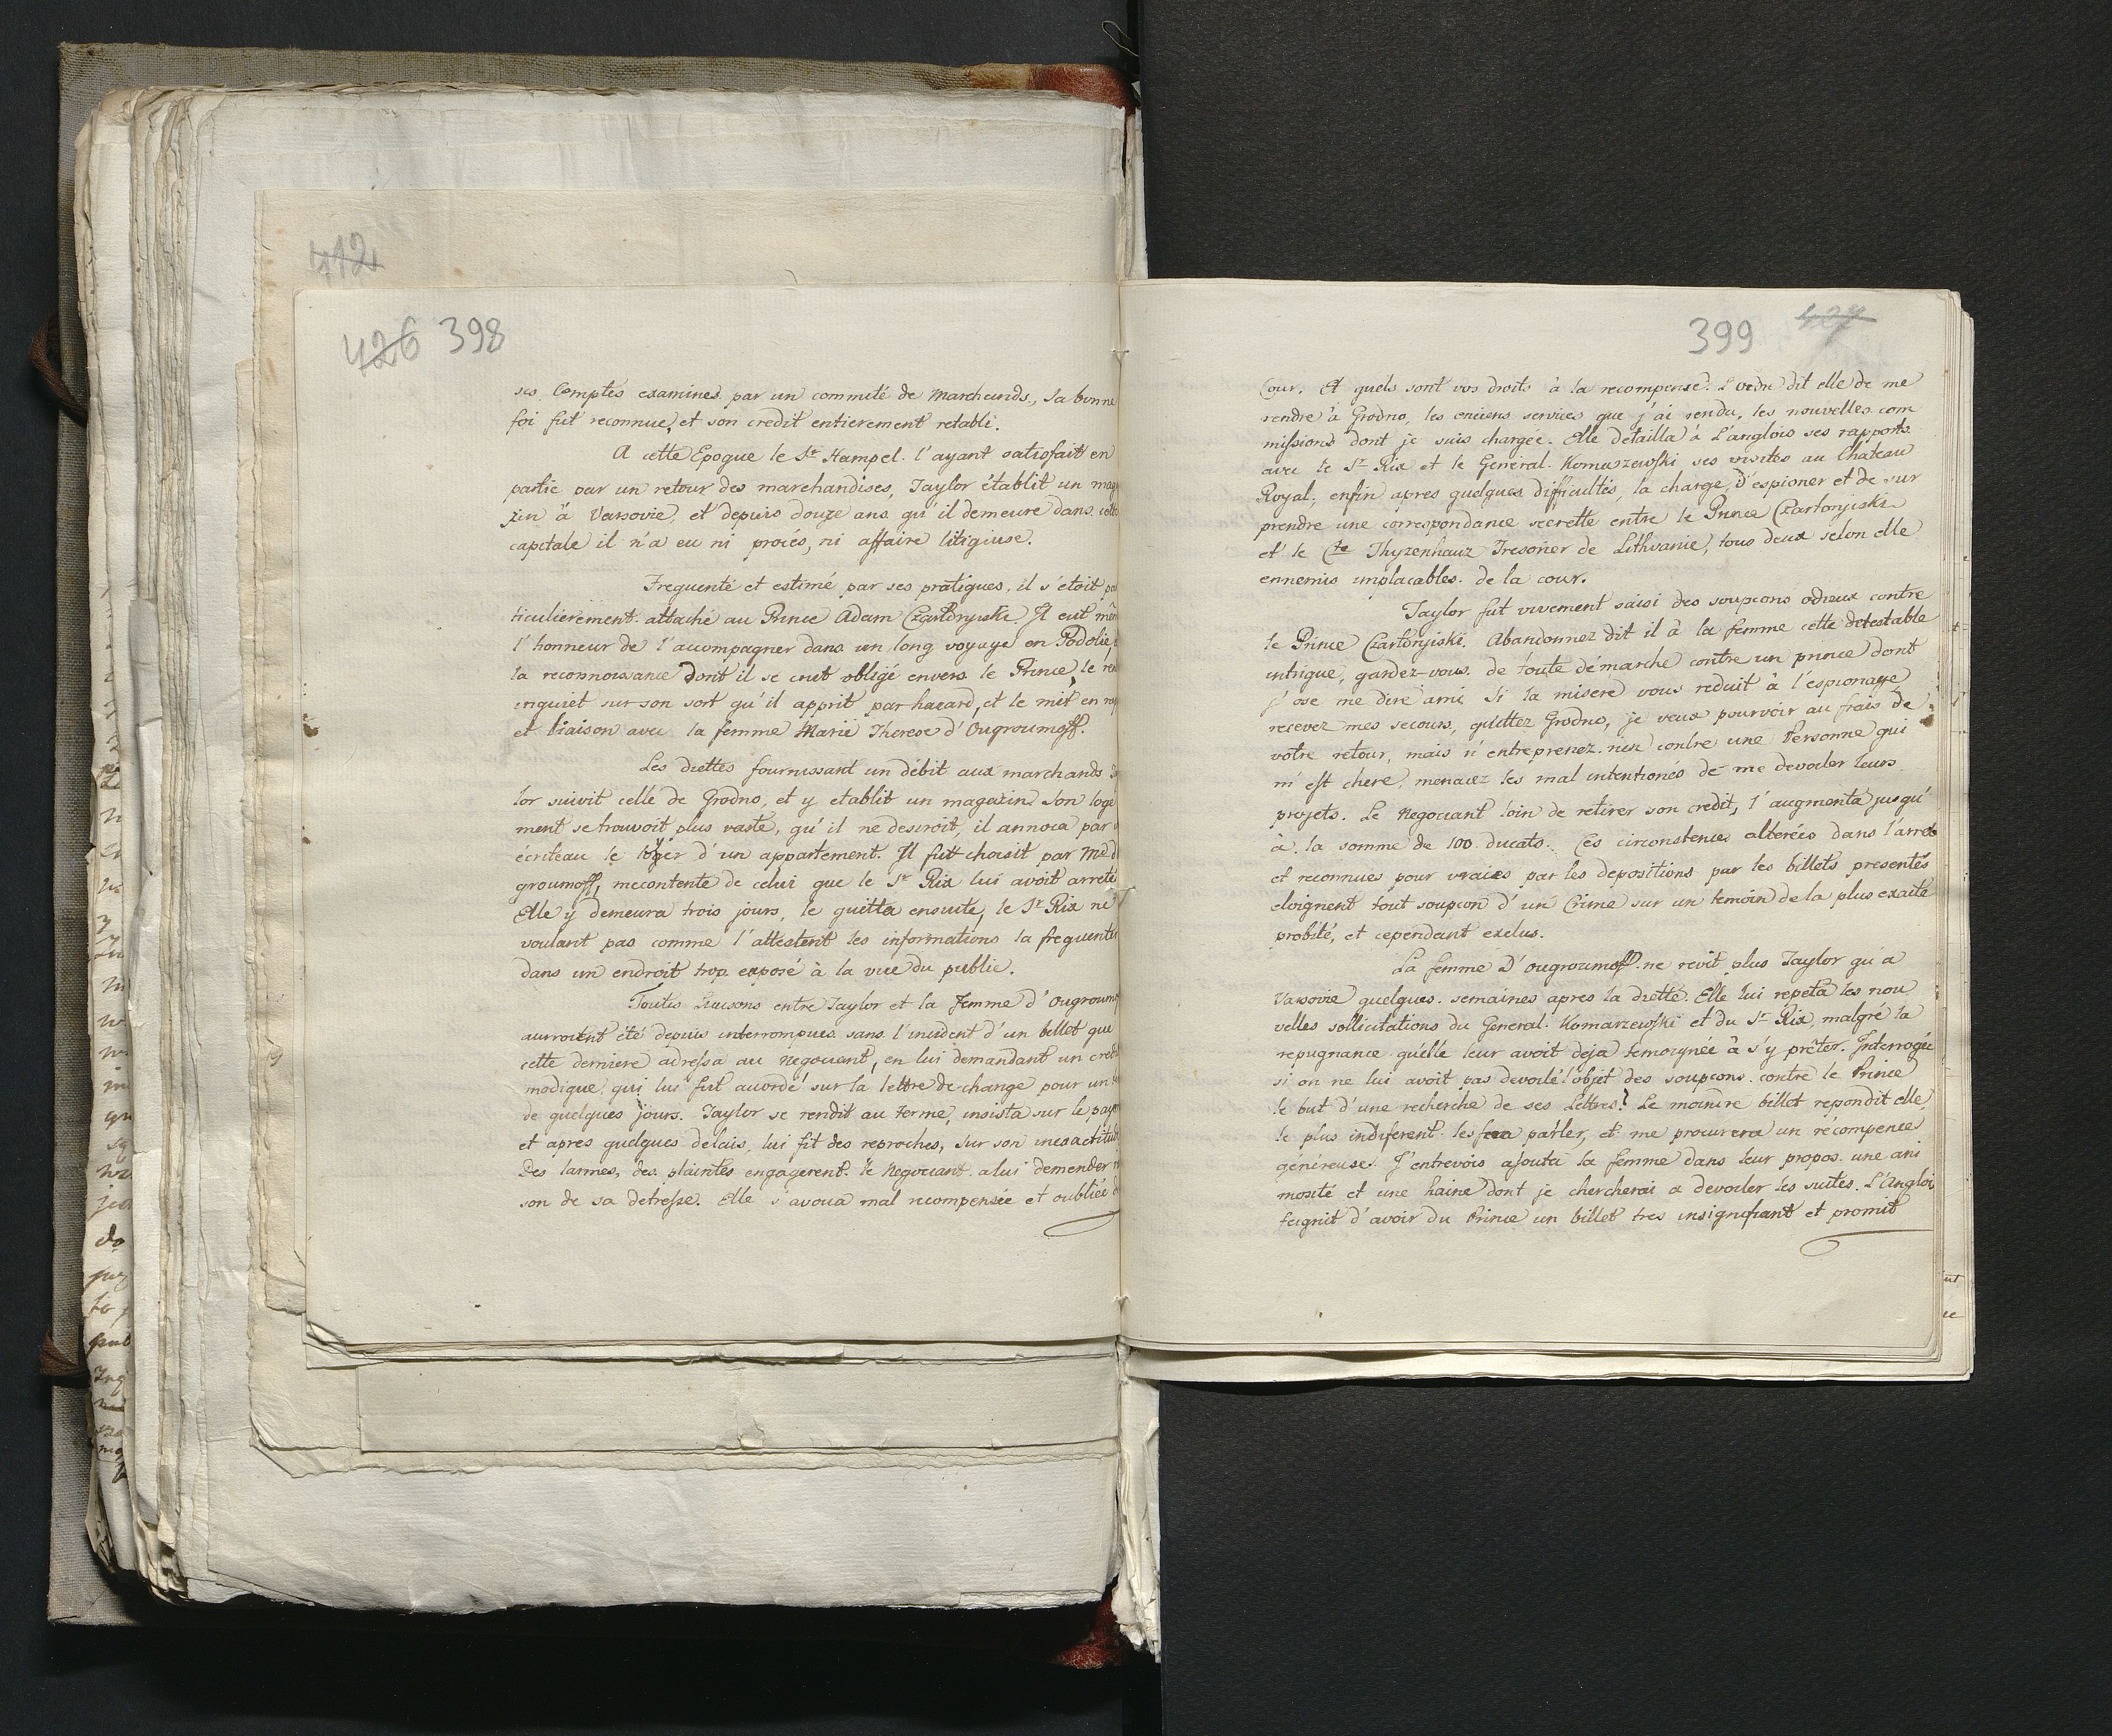 412
426 398
ses Comptes examines par un commité de Marchands, sa bonne
foi fut reconnue, et son credit entierement retabli.
A cette Epoque le Sr Hampel l'ayant satisfait en
partie par un retour des marchandises, Taylor établit un mag
zin à Varsovie, et depuis douze ans qu'il demeure dans cette
capitale il n'a eu ni proces, ni affaire litigieuse.
Frequenté et estimé par ses pratiques, il s'etoit pa
ticulierement attaché au Prince Adam Czartoryiski. Il eut mêm
l'honneur de l'accompagner dans un long voyage en Podolie,
la reconnoissance dont il se crut obligé envers le Prince, le ren
inquiet sur son sort qu'il apprit par hazard, et le mit en
et liaison avec la femme Marie Therese d'Ougroumoff.
Les diettes fournissant un débit aux marchands
lor suivit celle de Grodno, et y etablit un magazin. Son loge
ment se trouvoit plus vaste, qu'il ne desiroit, il annoca par
écriteau le loyer d'un appartement. Il fut choisit par Me d
groumoff, mecontente de celui que le Sr Rix lui avoit arreté
Elle y demeura trois jours, le quitta ensuite, le Sr Rix ne
voulant pas comme l'attestent les informations la frequenter
dans un endroit trop exposé à la vue du public.
Toutes liaisons entre Taylor et la femme d'Ougroum
auroient été depuis interrompues sans l'incident d'un billet que
cette derniere adressa au negociant, en lui demandant un credit
modique, qui lui fut accordé sur la lettre de change pour un
de quelques jours. Taylor se rendit au terme, insista sur le paye
et apres quelques delais, lui fit des reproches, sur son inexactitude
Des larmes, des plaintes engagerent le Negociant a lui demender
son de sa detresse. Elle s'avoua mal recompensée et oubliée
399 427
Cour. Et quels sont vos droits à la recompense? L'ordre dit elle de me
rendre à Grodno, les enciens services que j'ai rendu, les nouvelles com
missions dont je suis chargée. Elle detailla à L'anglois ses rapports
avec le Sr Rix et le General Komarzewski ses visites au Chateau
Royal, enfin apres quelques difficultés, la charge d'espioner et de sur
prendre une correspondance secrette entre le Prince Czartoryiski
et le Cte Thyzenhauz Tresorier de Lithuanie, tous deux selon elle
ennemis implacables de la cour.
Taylor fut vivement saisi des soupcons odieux contre
le Prince Czartoryiski. Abandonnez dit il à la femme cette detestable
intrigue, gardez-vous de toute démarche contre un prince dont
j'ose me dire ami. Si la misere vous reduit à l'espionage
recevez mes secours, quittez Grodno, je veux pourvoir au frais de
votre retour, mais n'entreprenez rien contre une Personne qui
m'est chere, menacez les mal intentionés de me devoiler leurs
projets. Le Negociant loin de retirer son credit, l'augmenta jusqu'
à la somme de 100 ducats. Ces circonstences alterées dans l'arret
et reconnues pour vraies par les depositions par les billets presentés
eloignent tout soupcon d'un Crime sur un temoin de la plus exacte
probité, et cependant exclus.
La femme D'ougroumoff ne revit plus Taylor qu'a
Varsovie quelques semaines apres la diette. Elle lui repeta les nou
velles sollicitations du General Komarzewski et du Sr Rix, malgré la
repugnance qu'elle leur avoit deja temoignée à s'y prêter. Interrogée
si on ne lui avoit pas devoilé l'objet des soupcons contre le Prince
le but d'une recherche de ses Lettres? Le moindre billet repondit elle
le plus indiferent les fera parler, et me procurera un récompence
généreuse. J'entrevois ajouta la femme dans leur propos une ani
mosité et une haine dont je chercherai a devoiler les suites. L'Anglois
feignit d'avoir du Prince un billet tres insignifiant et promit